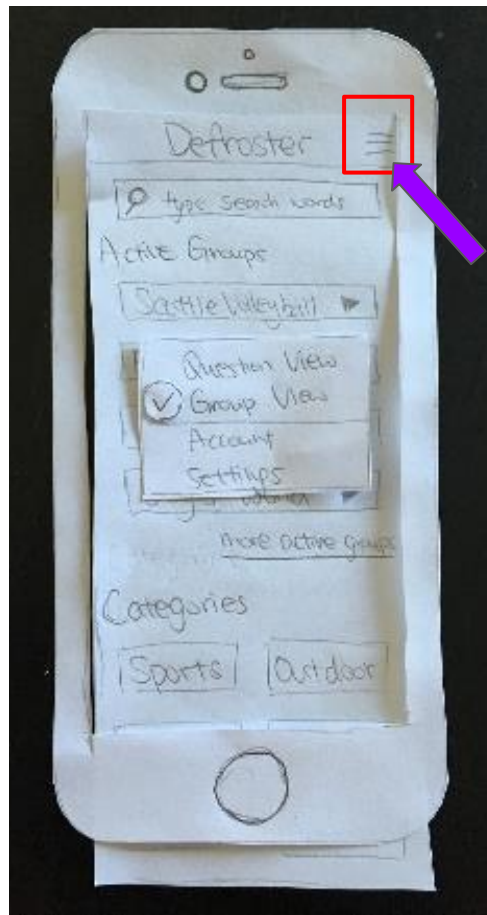 Defroster
type search words
Active Groups
Seattle Volleyball
Question View
Group View
Account
Settings
more active groups
Categories
Sports
Outdoor